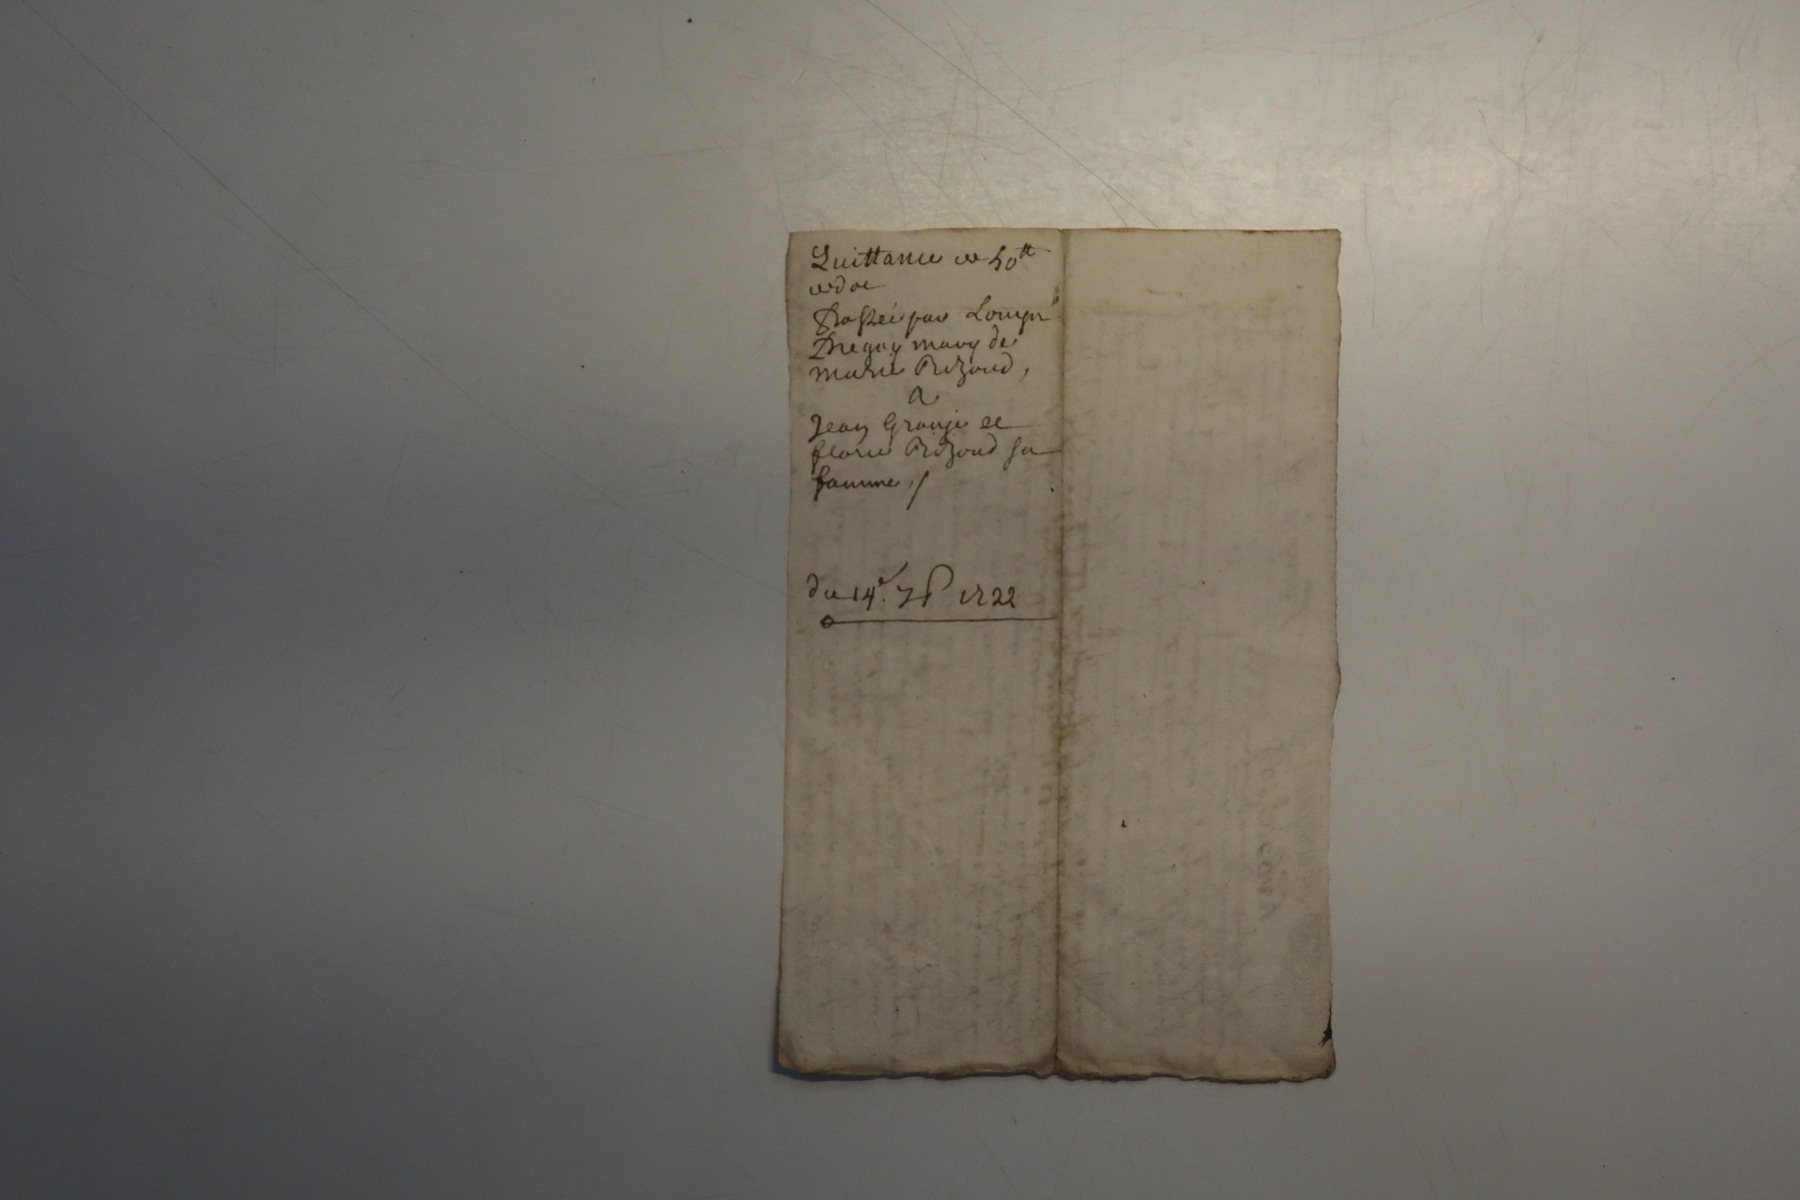 Quittance de 50tt
de dot
Passée par Louys
Dregay mary de
marie Prizoud,
a
Jean Granje et
florie Prizoud sa
famme, /
du 14e. 7b 1722